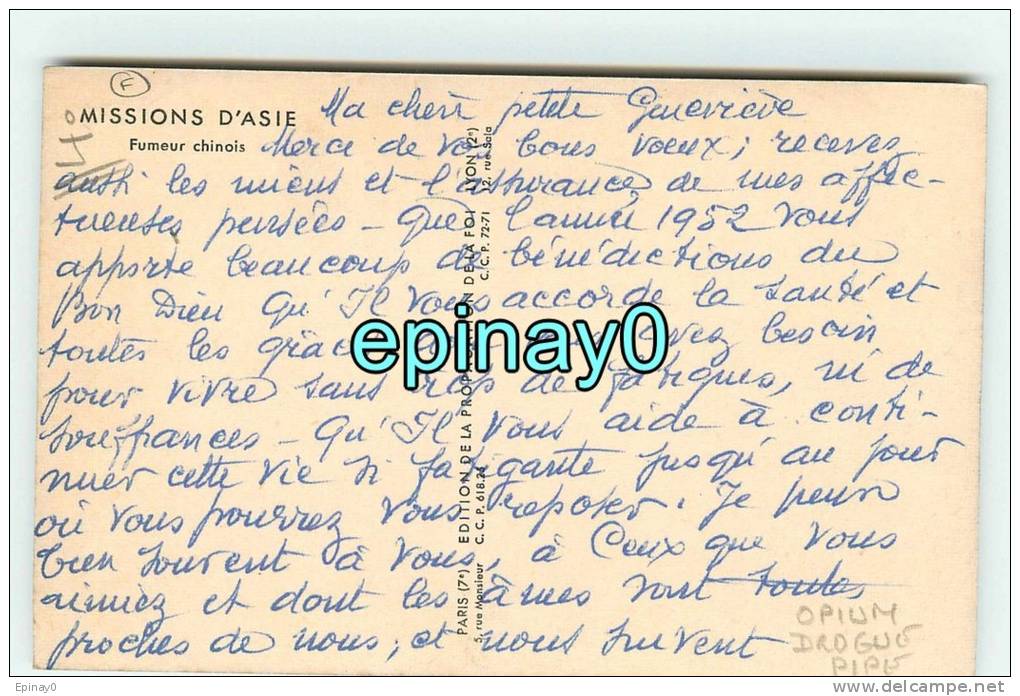 F
MISSIONS D'ASIE
Fumeur chinois
Ma chère petite Geneviève
Merci de vos bons voeux; recevez
aussi les miens et l'assurance de mes affec-
tueuses pensées - Que l'année 1952 vous
apporte beaucoup de bénédictions du
Bon Dieu Qu'Il vous accorde la santé et
toutes les grâces avez besoin
pour vivre sans trop de fatigues, ni de
souffrances - Qu'Il vous aide à conti-
nuer cette vie si fatigante jusqu'au jour
où vous pourrez vous reposer. Je pense
bien souvent à vous, à Ceux que vous
aimiez et dont les âmes sont toutes
proches de nous, et nous suivent
PARIS (7e) EDITION DE LA PROPAGATION DE LA FOI LYON (2e)
5, rue Monsieur C.C.P. 618.24 C.C.P. 72-71 12, rue Sala
epinay0
OPIUM
DROGUE
PIPE
Epinay0
www.delcampe.net